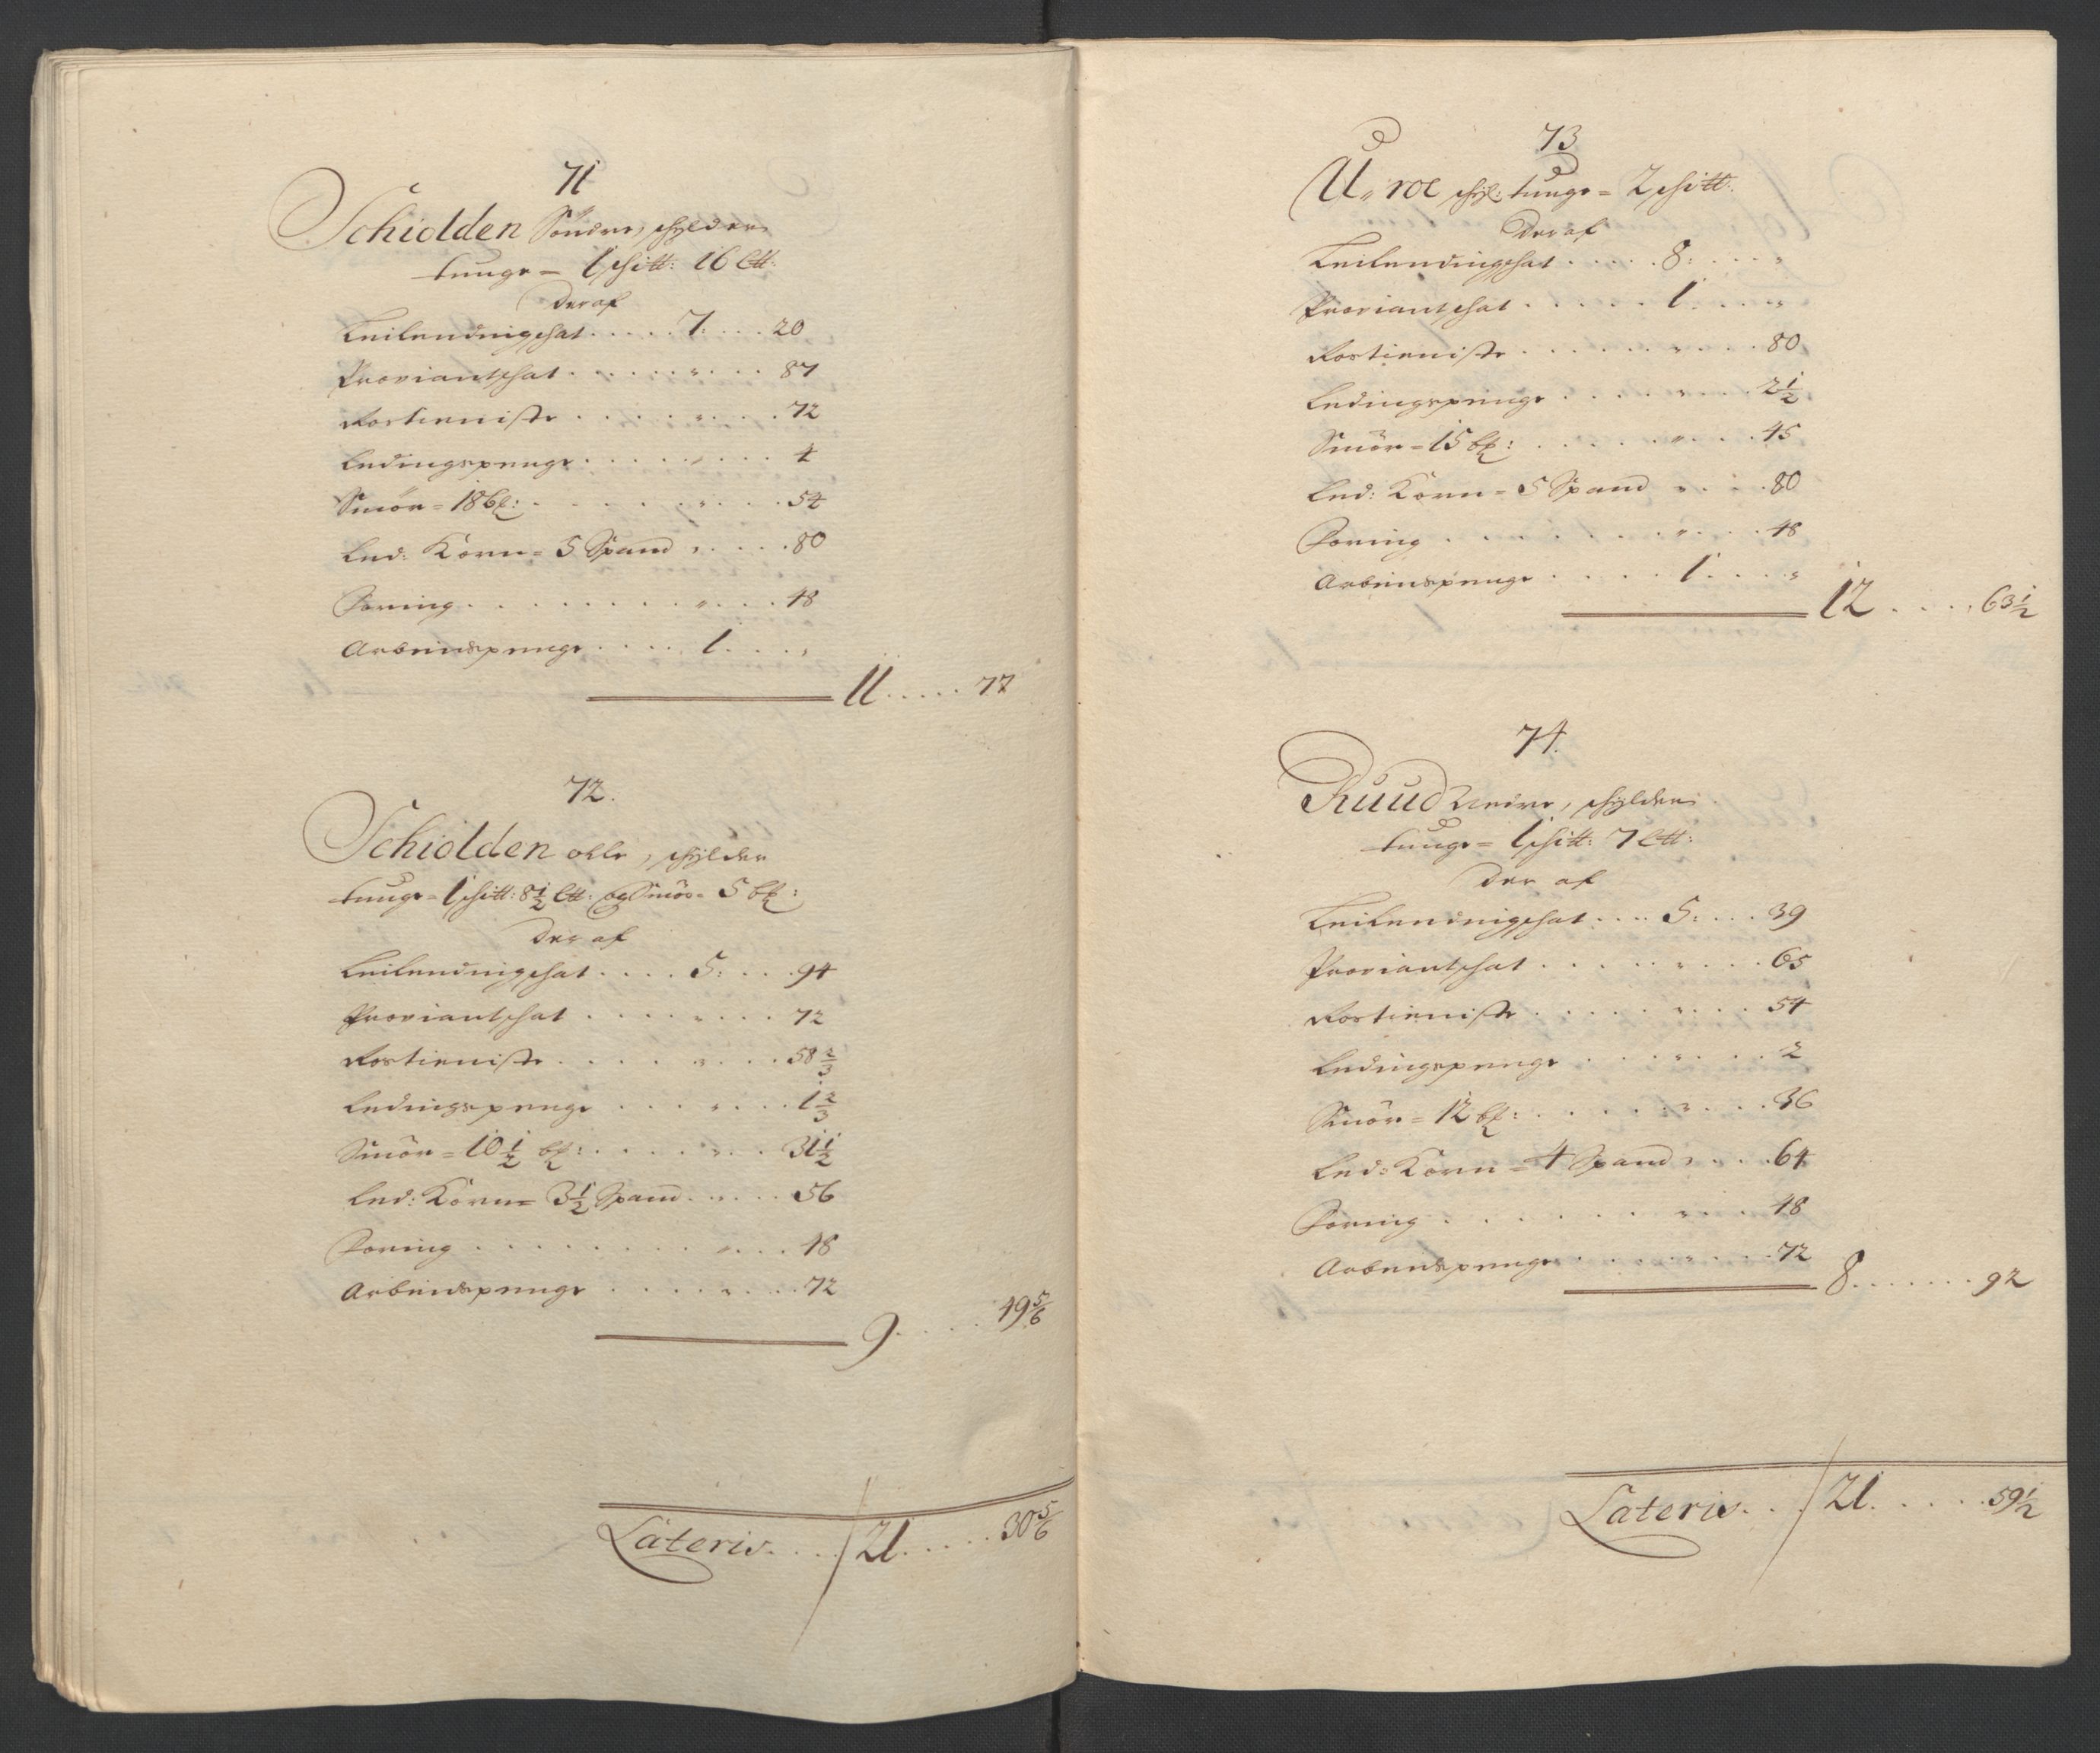 71
Schiolden Söndre, schylder
tunge = 1 schitt: 16 Ltt:
Deraf
Leilendingschat . . . . . 7: . . . 20
Proviantschat . . . . . . " . . . 87
Rostieniste . . . . . . " . . . 72
Ledingspenge . . . . . " . . . 4
Smör = 18 bl: . . . . . . " . . . 54
Led: Korn = 5 Spand " . . . . 80
Foring . . . . . . . . " . . . 48
Arbeidspenge . . . . 1 . . . "
11 . . . . . 77
72.
Schiolden oelle, schylder
tunge = 1 schitt: 8 1/2 Ltt: og Smör = 5 bl:
Der af
Leilendingschat . . . . 5: . . . 94
Proviantschat . . . . . " . . . 72
Rostieniste . . . . . " . . . 58 2/3
Ledingspenge . . . . " . . . 1 2/3
Smör = 10 1/2 bl: . . . . . " . . 31 1/2
Led: Korn = 3 1/2 Spand . " . . . 56
Foring . . . . . . . . " . . . 48
Arbeidspenge . . . . . " . . . 72
9 . . . . 49 5/6
Lateris . . . . 21 . . . . . 30 5/6
73
U, roe schyl: tunge = 2 schitt:
Deraf
Leilendingschat . . . . . 8: . . . "
Proviantschat . . . . . . 1 . . . "
Rostieniste . . . . . . " . . . 80
Ledingspenge . . . . . " . . . 2 1/2
Smör = 15 bl: . . . . . . " . . . 45
Led: Korn = 5 Spand " . . . 80
Foring . . . . . . . . " . . . 48
Arbeidspenge . . . . . 1 . . . . "
12 . . . . 63 1/2
74.
Ruud Nedre, schylder
tunge = 1 schitt: 7 Ltt:
Der af
Leilendingschat . . . . 5: . . . 39
Proviantschat . . . . . " . . . 65
Rostieniste . . . . . " . . . 54
Ledingspenge . . . . " . . . 2
Smör = 12 bl: . . . . . " . . . 36
Led: Korn = 4 Spand " . . . 64
Foring . . . . . . . " . . . 48
Arbeidspenge . . . . . " . . . 72
8 . . . . . . . 92
Lateris . . . 21 . . . . . 59 1/2